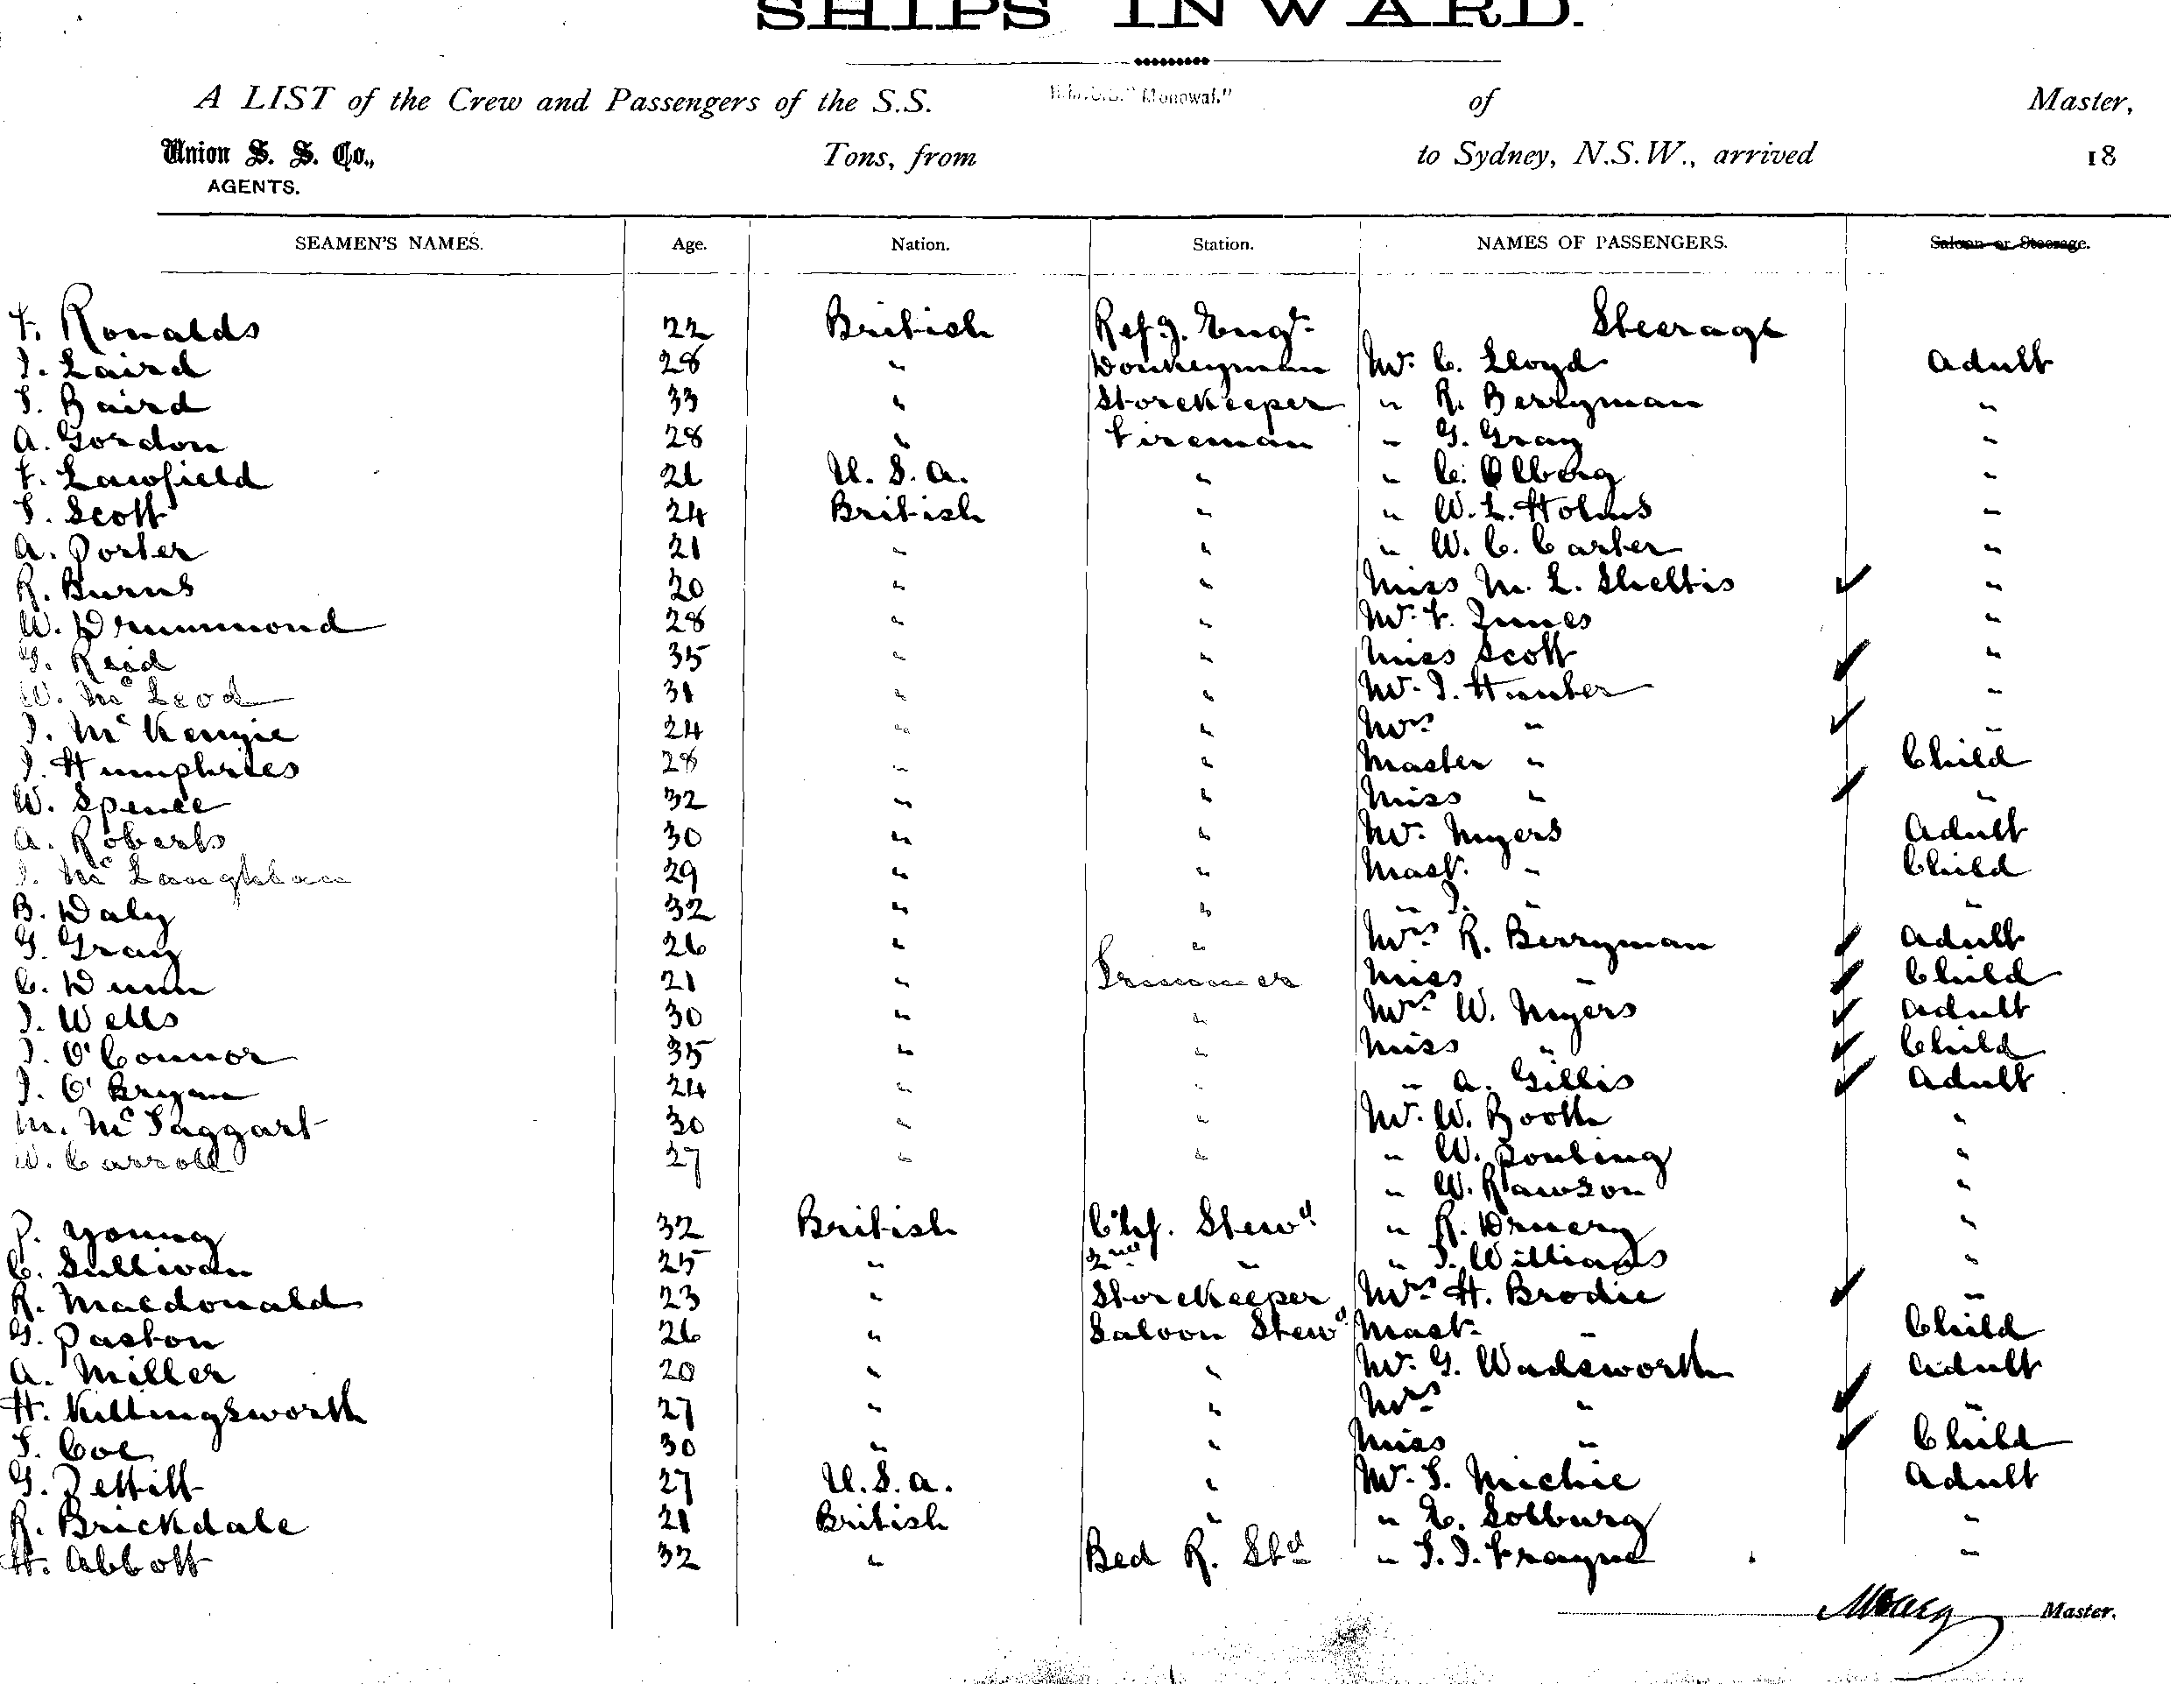 SHIPS INWARD.
A LIST of the Crew and Passengers of the S.S. "Monowai." of Master,
Union S. S. Co., Tons, from to Sydney, N.S.W., arrived 18
AGENTS.
SEAMEN'S NAMES. Age. Nation. Station. NAMES OF PASSENGERS. Saloon or Steerage.
F. Ronalds 22 British Refg. Engr. Steerage
J. Laird 28 " Donkeyman Mr. C. Lloyd Adult
T. Baird 33 " Storekeeper " R. Berryman "
A. Gordon 28 " Fireman " G. Gray "
F. Lawfield 21 U.S.A. " " C. Olberg "
T. Scott 24 British " " W. L. Holms "
A. Porter 21 " " " W. C. Carter "
R. Burns 20 " " Miss M. L. Sheltis ✓ "
W. Drummond 28 " " Mr. F. Junes "
G. Reid 35 " " Miss Scott ✓ "
W. McLeod 31 " " Mr. J. Hunter "
J. McKenzie 24 " " Mrs " ✓ "
J. Humphries 28 " " Master " Child
W. Spence 32 " " Miss " ✓ "
A. Roberts 30 " " Mr. Myers Adult
J. McLaughlan 29 " " Mast. " Child
B. Daly 32 " " " J. " "
G. Gray 26 " " Mrs R. Berryman ✓ Adult
C. Dunn 21 " Trimmer Miss " ✓ Child
J. Wells 30 " " Mrs W. Myers ✓ Adult
J. O'Connor 35 " " Miss " ✓ Child
J. O'Bryan 24 " " " A. Gillis ✓ Adult
M. McTaggart 30 " " Mr. W. Booth "
W. Carroll 27 " " " W. Ponting "
" W. Rawson "
P. Young 32 British Chf. Stewd " R. Druery "
C. Sullivan 25 " 2nd " " J. Williams "
R. Macdonald 23 " Storekeeper Mrs H. Brodie ✓ "
G. Paston 26 " Saloon Stewd Mast. " Child
A. Miller 20 " " Mr. G. Wadsworth Adult
H. Killingsworth 27 " " Mrs " ✓ "
T. Coe 30 " " Miss " ✓ Child
G. Pettitt 27 U.S.A. " Mr. T. Michie Adult
R. Brickdale 21 British " " E. Solburg "
H. Abbott 32 " Bed R. Std " T. J. Frayne "
Master.